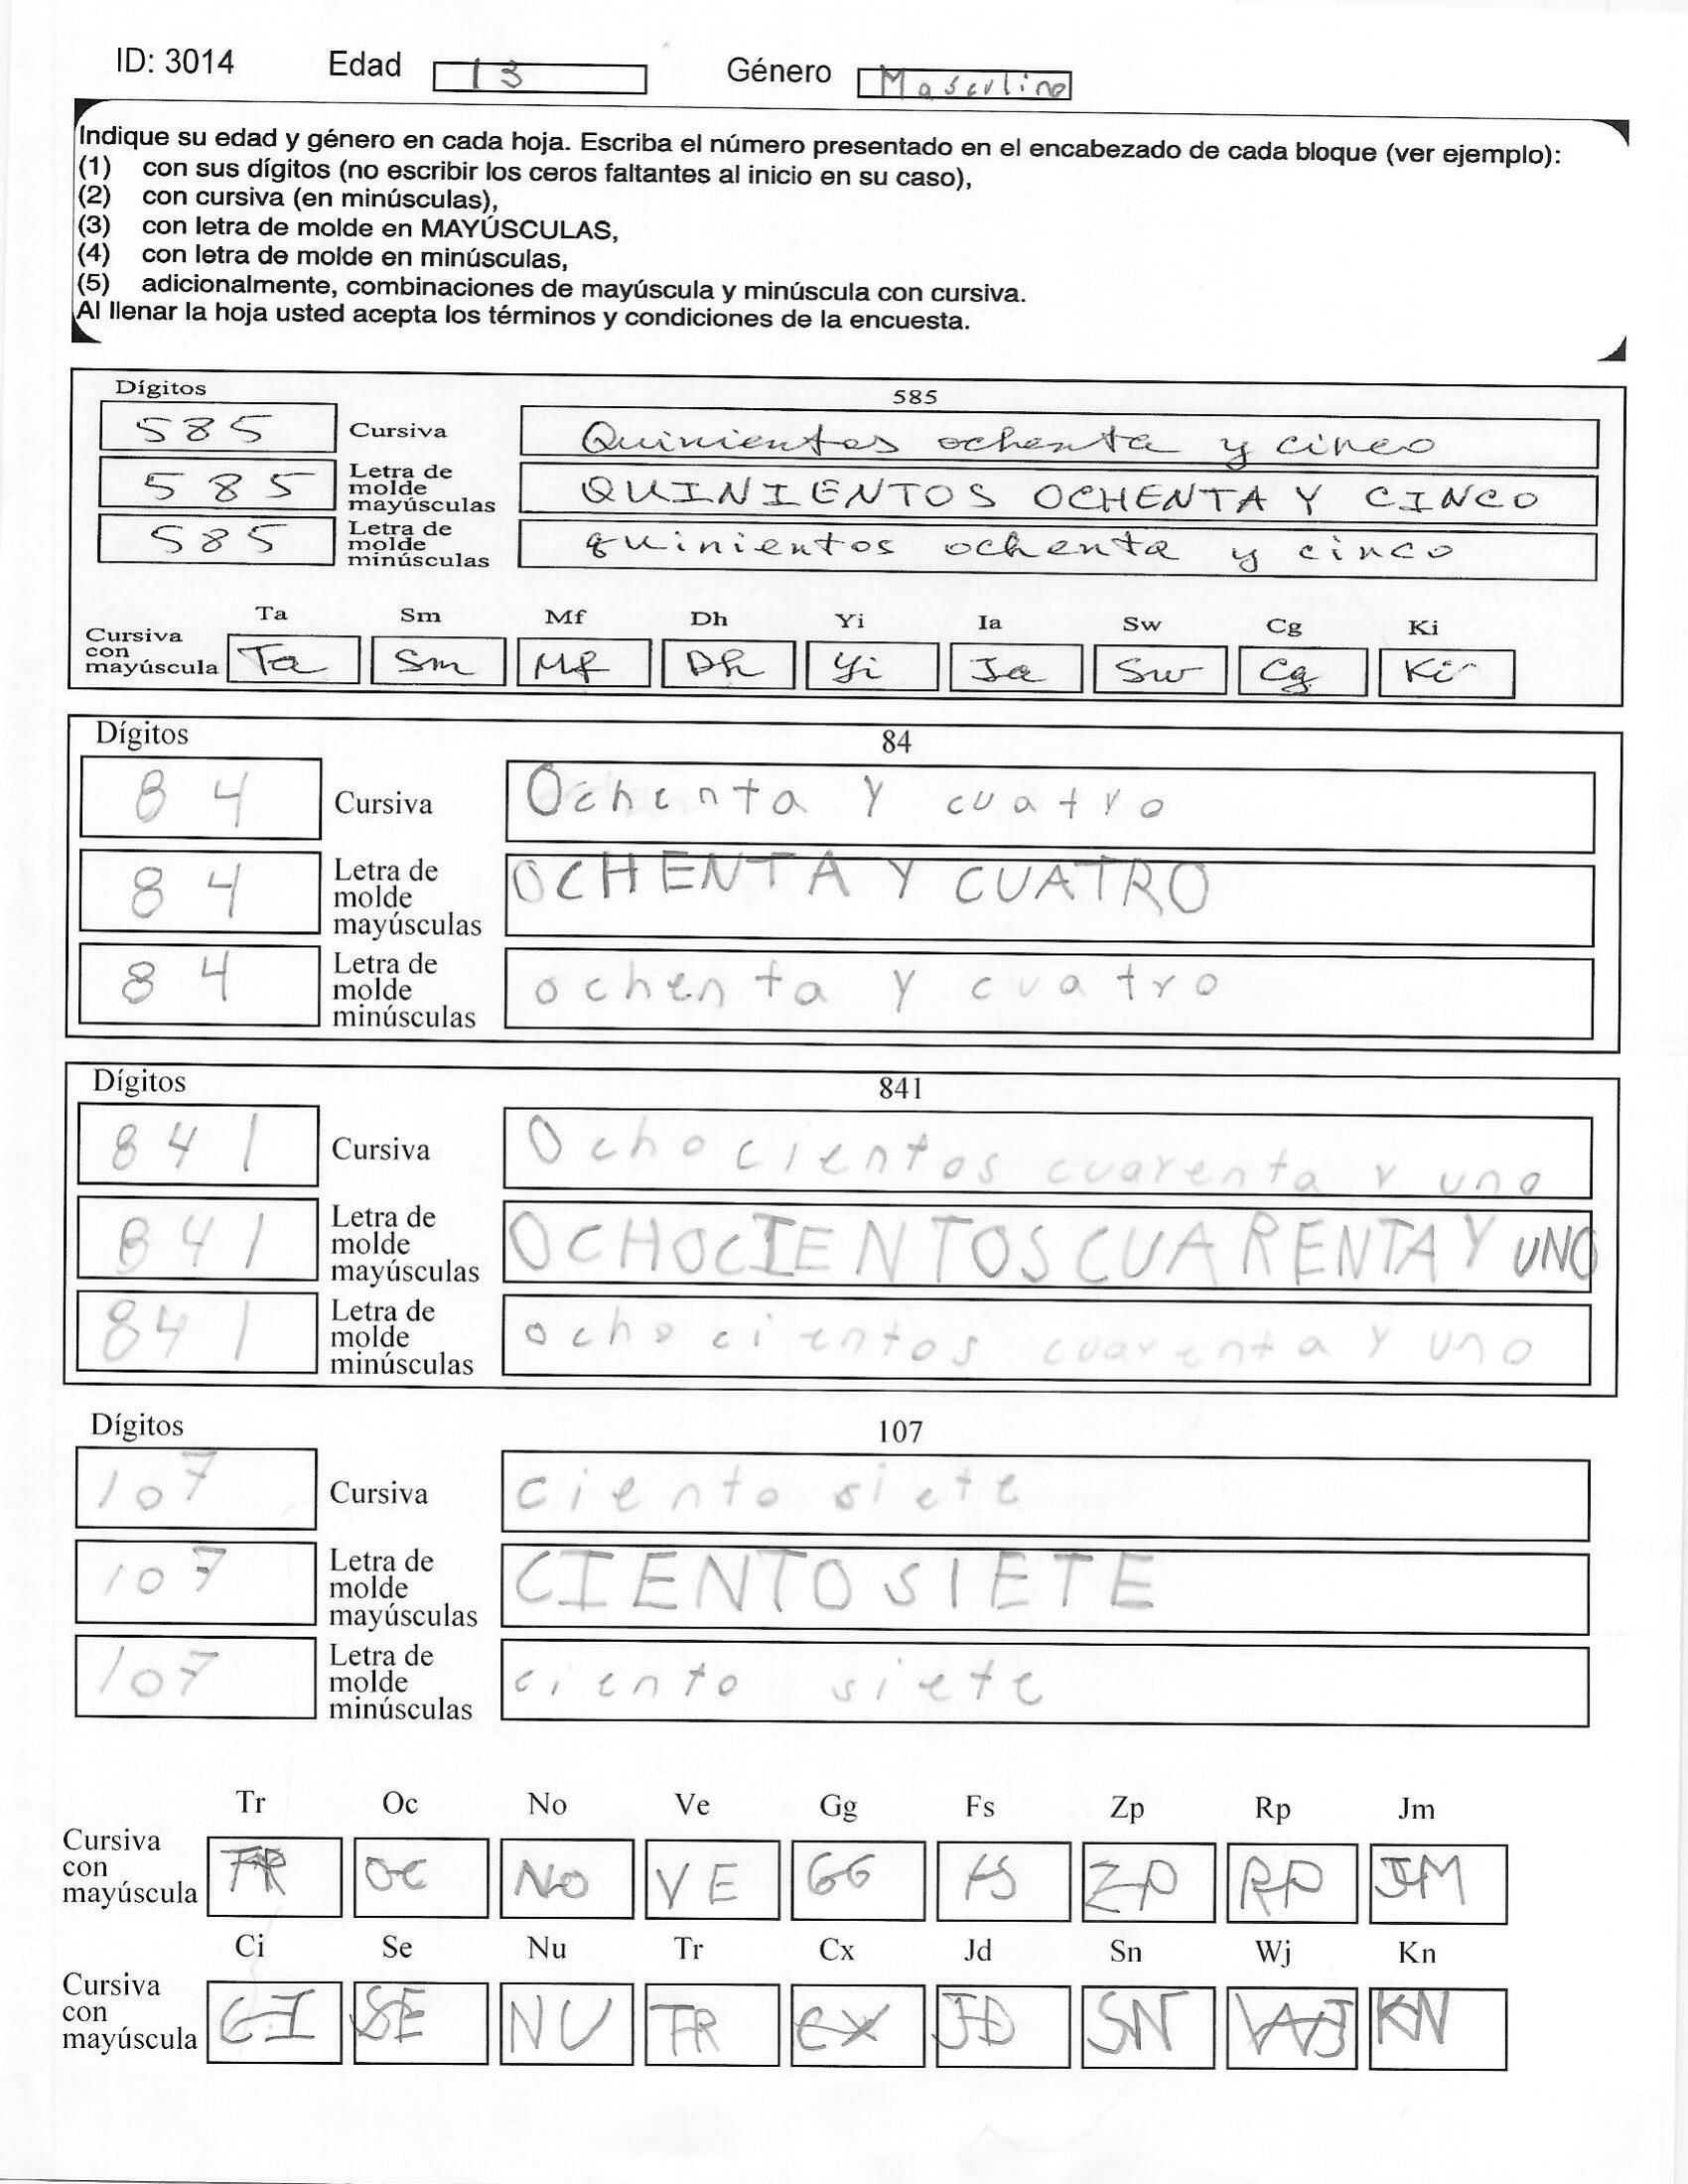 ID: 3014 Edad 13 Género Masculino
Indique su edad y género en cada hoja. Escriba el número presentado en el encabezado de cada bloque (ver ejemplo):
(1) con sus dígitos (no escribir los ceros faltantes al inicio en su caso),
(2) con cursiva (en minúsculas),
(3) con letra de molde en MAYÚSCULAS,
(4) con letra de molde en minúsculas,
(5) adicionalmente, combinaciones de mayúscula y minúscula con cursiva.
Al llenar la hoja usted acepta los términos y condiciones de la encuesta.
Dígitos 585
585 Cursiva Quinientos ochenta y cinco
585 Letra de molde mayúsculas QUINIENTOS OCHENTA Y CINCO
585 Letra de molde minúsculas quinientos ochenta y cinco
Ta Sm Mf Dh Yi Ia Sw Cg Ki
Cursiva con mayúscula Ta Sm Mf Dh Yi Ia Sw Cg Ki
Dígitos 84
84 Cursiva Ochenta y cuatro
84 Letra de molde mayúsculas OCHENTA Y CUATRO
84 Letra de molde minúsculas ochenta y cuatro
Dígitos 841
841 Cursiva Ochocientos cuarenta y uno
841 Letra de molde mayúsculas OCHOCIENTOS CUARENTA Y UNO
841 Letra de molde minúsculas ochocientos cuarenta y uno
Dígitos 107
107 Cursiva ciento siete
107 Letra de molde mayúsculas CIENTO SIETE
107 Letra de molde minúsculas ciento siete
Tr Oc No Ve Gg Fs Zp Rp Jm
Cursiva con mayúscula TR OC NO VE GG FS ZP RP JM
Ci Se Nu Tr Cx Jd Sn Wj Kn
Cursiva con mayúscula CI SE NU TR CX JD SN WJ KN